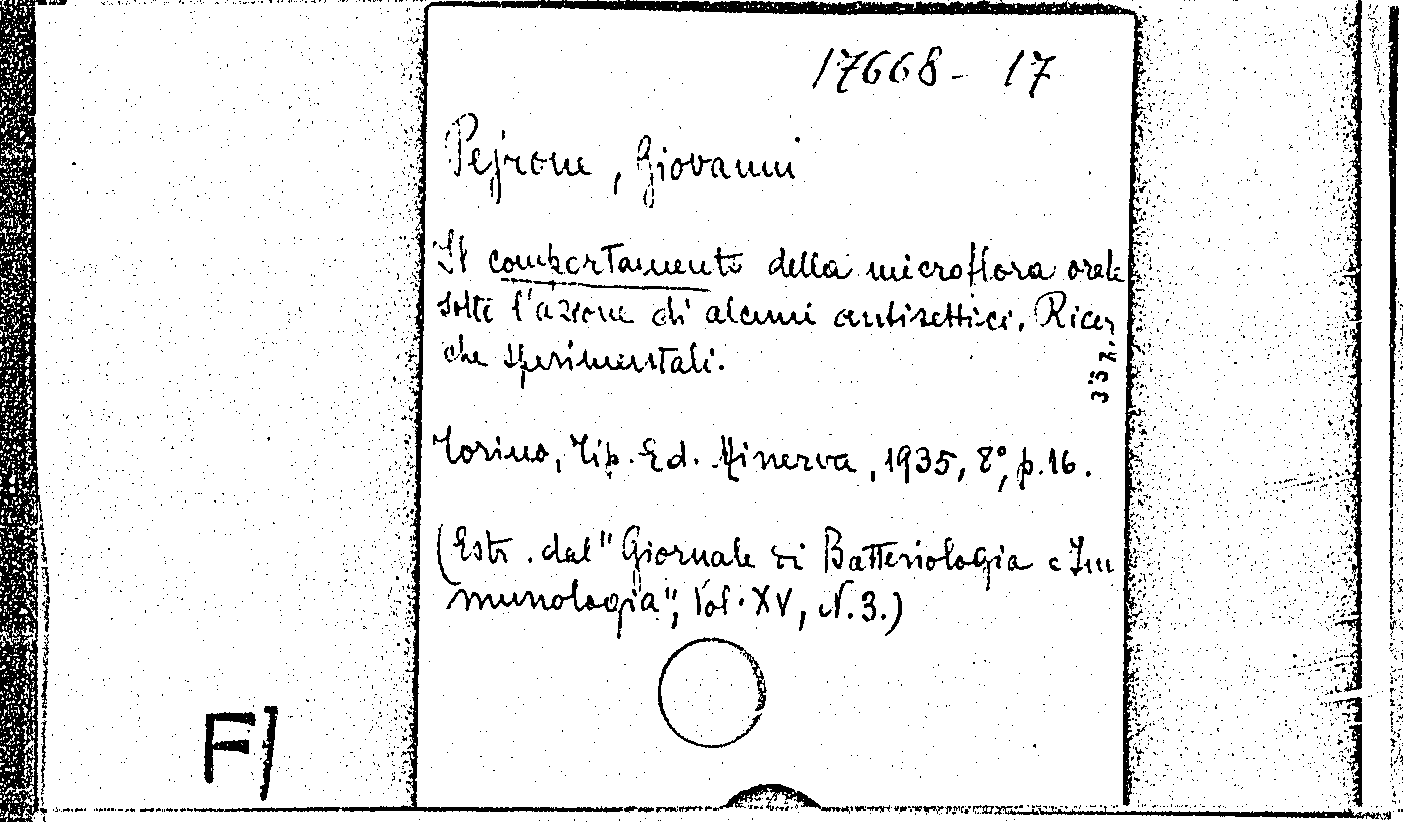 17668 - 17
Pejrone, Giovanni
Il comportamento della microflora orale
sotto l'azione di alcuni antisettici. Ricer
che sperimentali.
Torino, Tip. Ed. Minerva, 1935, 8°, p. 16.
(Estr. dal "Giornale di Batteriologia e Im
munologia", Vol. XV, N. 3.)
F1